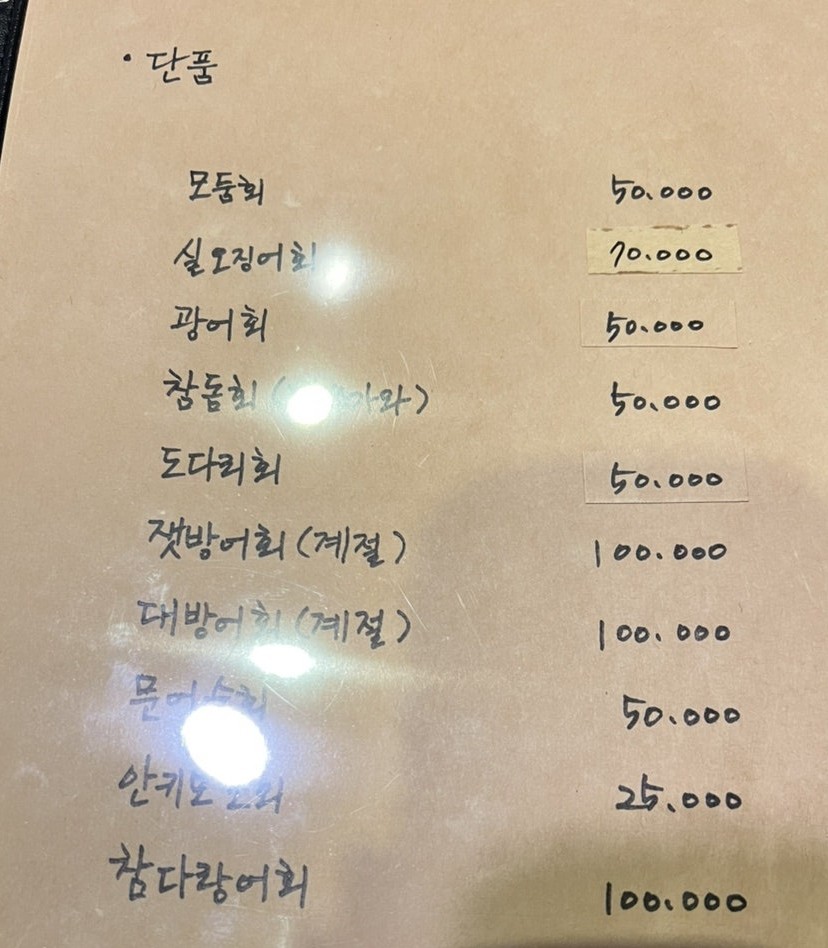 • 단품
모둠회 50.000
실오징어회 70.000
광어회 50.000
참돔회 50.000
도다리회 50.000
잿방어회 (계절) 100.000
대방어회 (계절) 100.000
50.000
25.000
참다랑어회 100.000